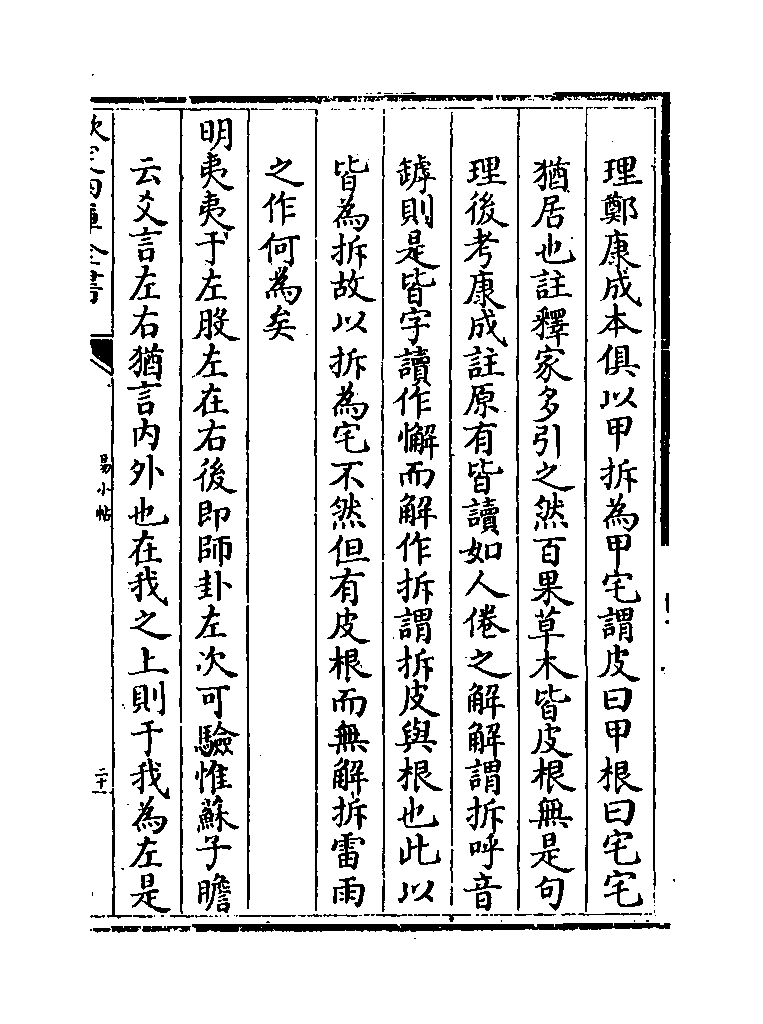 理鄭康成本俱以甲拆為甲宅謂皮曰甲根曰宅宅
猶居也註釋家多引之然百果草木皆皮根無是句
理後考康成註原有皆讀如人倦之解解謂拆呼音
罅則是皆字讀作懈而解作拆謂拆皮與根也此以
皆為拆故以拆為宅不然但有皮根而無解拆雷雨
之作何為矣
明夷夷于左股左在右後即師卦左次可驗惟蘇子瞻
云爻言左右猶言内外也在我之上則于我為左是
欽定四庫全書
易小帖
二十一